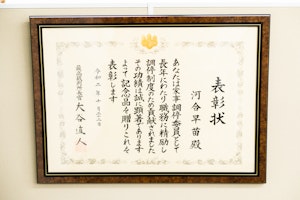 表彰状
河合早苗殿
あなたは家事調停委員として
長年にわたり職務に精励し
調停制度のため貢献されました
その功績は誠に顕著であります
よってここに記念品を贈りこれを
表彰します
令和二年十月
最高裁判所長官
大谷直人